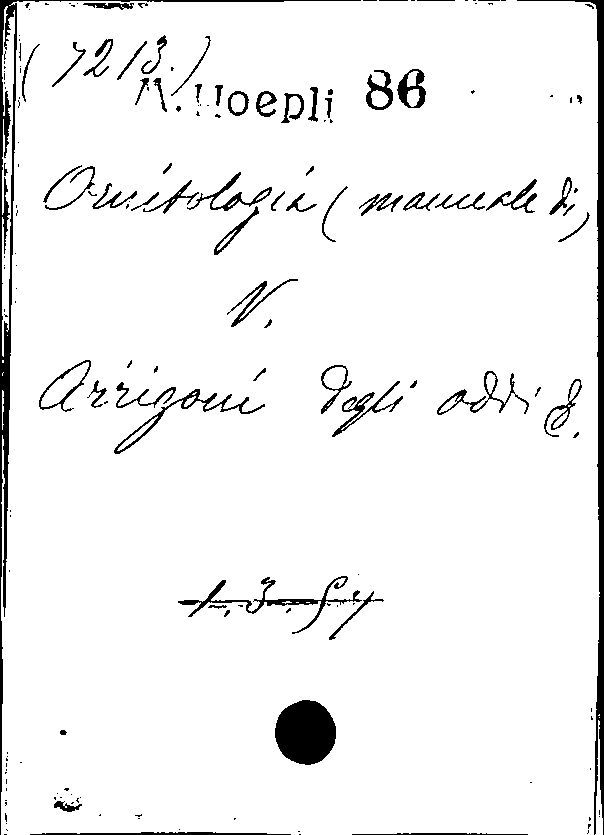 (7213.)
M. Hoepli 86
Ornitologia (manuale di)
V.
Arrigoni degli oddi E.
1.3.57